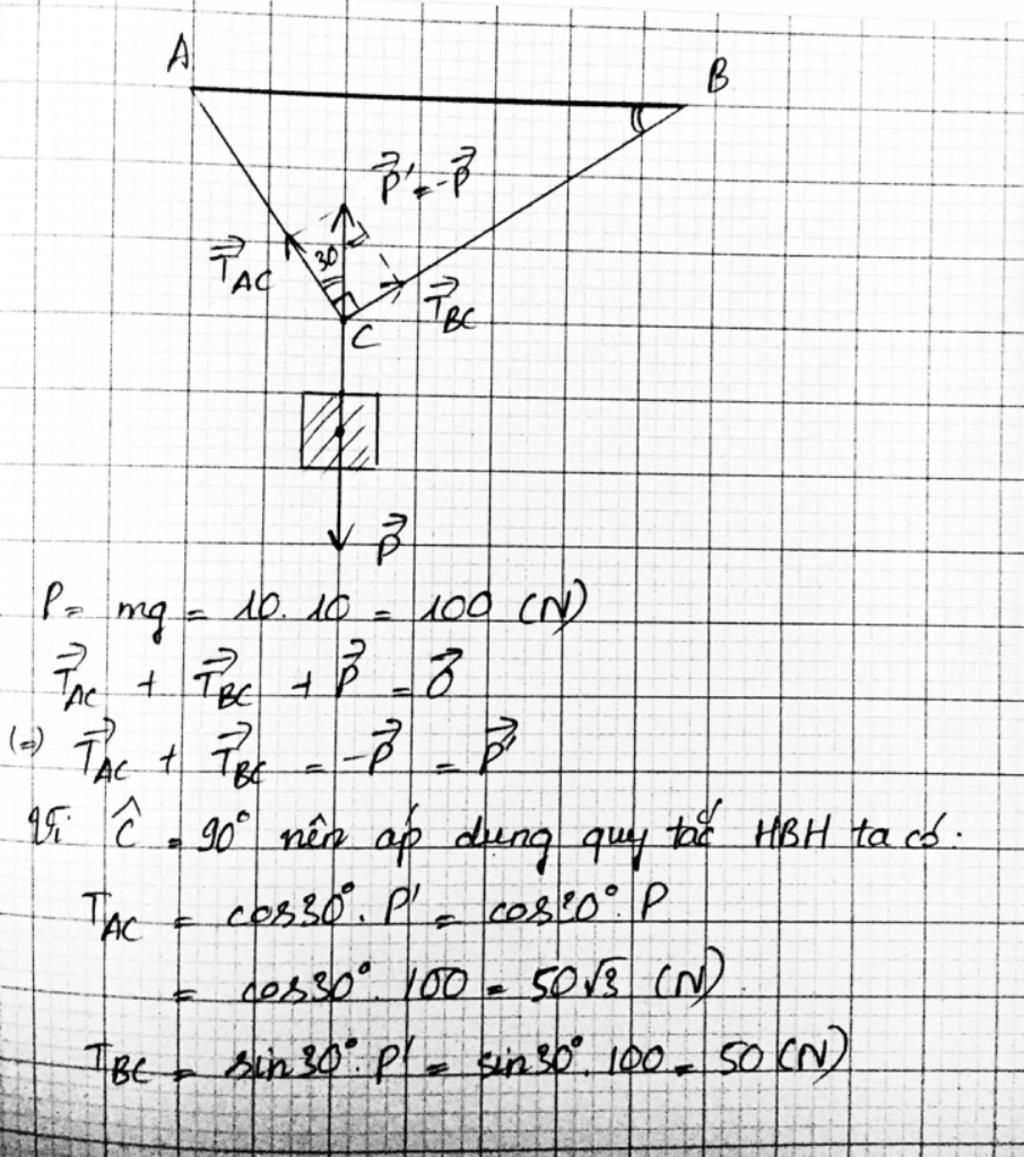 A
B
P⃗' = -P⃗
30
T⃗AC
T⃗BC
C
P⃗
P = mg = 10. 10 = 100 (N)
T⃗AC + T⃗BC + P⃗ = 0⃗
(=) T⃗AC + T⃗BC = -P⃗ = P⃗'
Vì Ĉ = 90° nên áp dụng quy tắc HBH ta có:
TAC = cos30°. P' = cos30°. P
= cos30°. 100 = 50√3 (N)
TBC = sin30°. P' = sin30°. 100 = 50 (N)